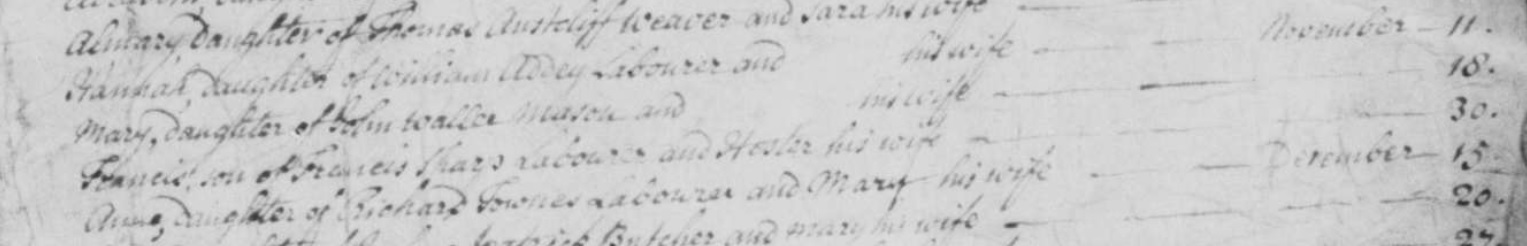 Almary daughter of Thomas Austcliff Weaver and Sara his wife — November — 11.
Hannah, daughter of William Addey Labourer and his wife — 18.
Mary, daughter of John Waller Mason and his wife — 30.
Francis, son of Francis Sharp Labourer and Hester his wife — December — 15.
Anne, daughter of Richard Townes Labourer and Mary his wife — 20.
Butcher and Mary his wife — 27.